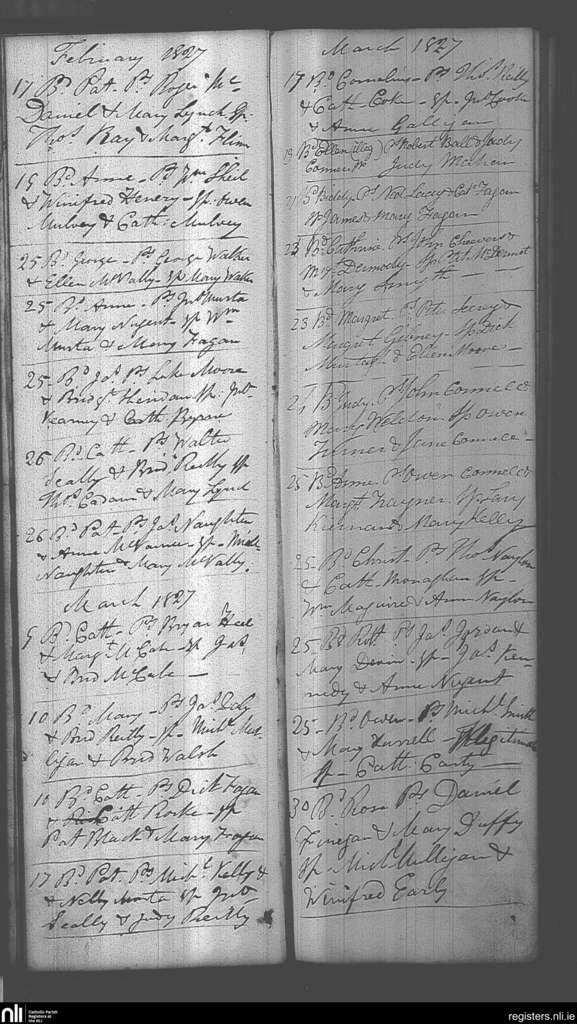 February 1827
17 Bd Pat. Ps Roger Mc
Daniel & Mary Lynch Sp.
Thos. Ray & Margt. Flinn
19 Bd Anne - Ps Wm Sheil
& Winifred Henery - Sp. Owen
Mulvey & Cath: Mulvey
25 Bd George - Ps George Walker
& Ellen McVally - Sp Mary Walker
25 Bd Anne - Ps Jno Murta
& Mary Nugent - Sp Wm
Murta & Mary Fagan
25 - Bd Jas. Ps Luke Moore
& Bridgt. Sheridan Sp. Jno.
Kearney & Cath Byrne
26 Bd Cath - Ps Walter
Scally & Brid Reilly Sp
Thos. & Mary Lynch
26 Bd Pat - Ps Jas. Naughten
& Anne - Sp - Michl.
Naughten & Mary McVally.
March 1827
9 Bd Cath - Ps Bryan
& Margt. McCabe - Sp Jas.
& Brid McCabe -
10 Bd Mary - Ps Jas. Daly
& Brid Reilly - Sp - Michl. Mul-
ligan & Brid Walsh
10 Bd Cath - Ps Dick Fagan
& Cath Rorke - Sp
Pat Black & Mary Fagan
17 Bd Pat. Ps Michl. Kelly &
& Nelly Murta Sp Jno
Scally & Judy Reilly
March 1827
17 Bd Cornelius - Ps Thos. Reilly
& Cath - Sp - Jno
& Anne Galligan
19 Bd Ellen (Illeg) Ps Robert Ball & Judy
Connor Sp Judy
21 Bd Biddy Ps Ned Lacey & Cath Fagan
Sp James & Mary Fagan
23 Bd Cathrine Ps John Cheevers &
Mary Dermody - Sp Pat McDermot
& Mary Smyth -
23 Bd Margret Ps Pete &
Margret - Sp Dick
Murtagh & Ellen Moore -
21 Bd Judy. Ps John Connell &
Mary Weldon - Sp Owen
Turner & Jane Connell -
25 Bd Anne Ps Owen Connell &
Margt - Sp
Kiernan & Mary Kelly
25. Bd Christ - Ps Thos Naylon
& Cath Monaghan Sp -
Wm Maguire & Ann Naylon
25. Bd Robt. Ps Jas. Jordan &
Mary - Sp - Jas Ken-
nedy & Anne Nugent
25 - Bd Owen - Ps Michl. Smith
& Mary Farrell - Illegitimate
Sp - Cath: Carty -
30 Bd Rose Ps Daniel
Finegan & Mary Duffy
Sp Michl. Mulligan &
Winifred Early
nli
Catholic Parish
Registers at
the NLI
registers.nli.ie